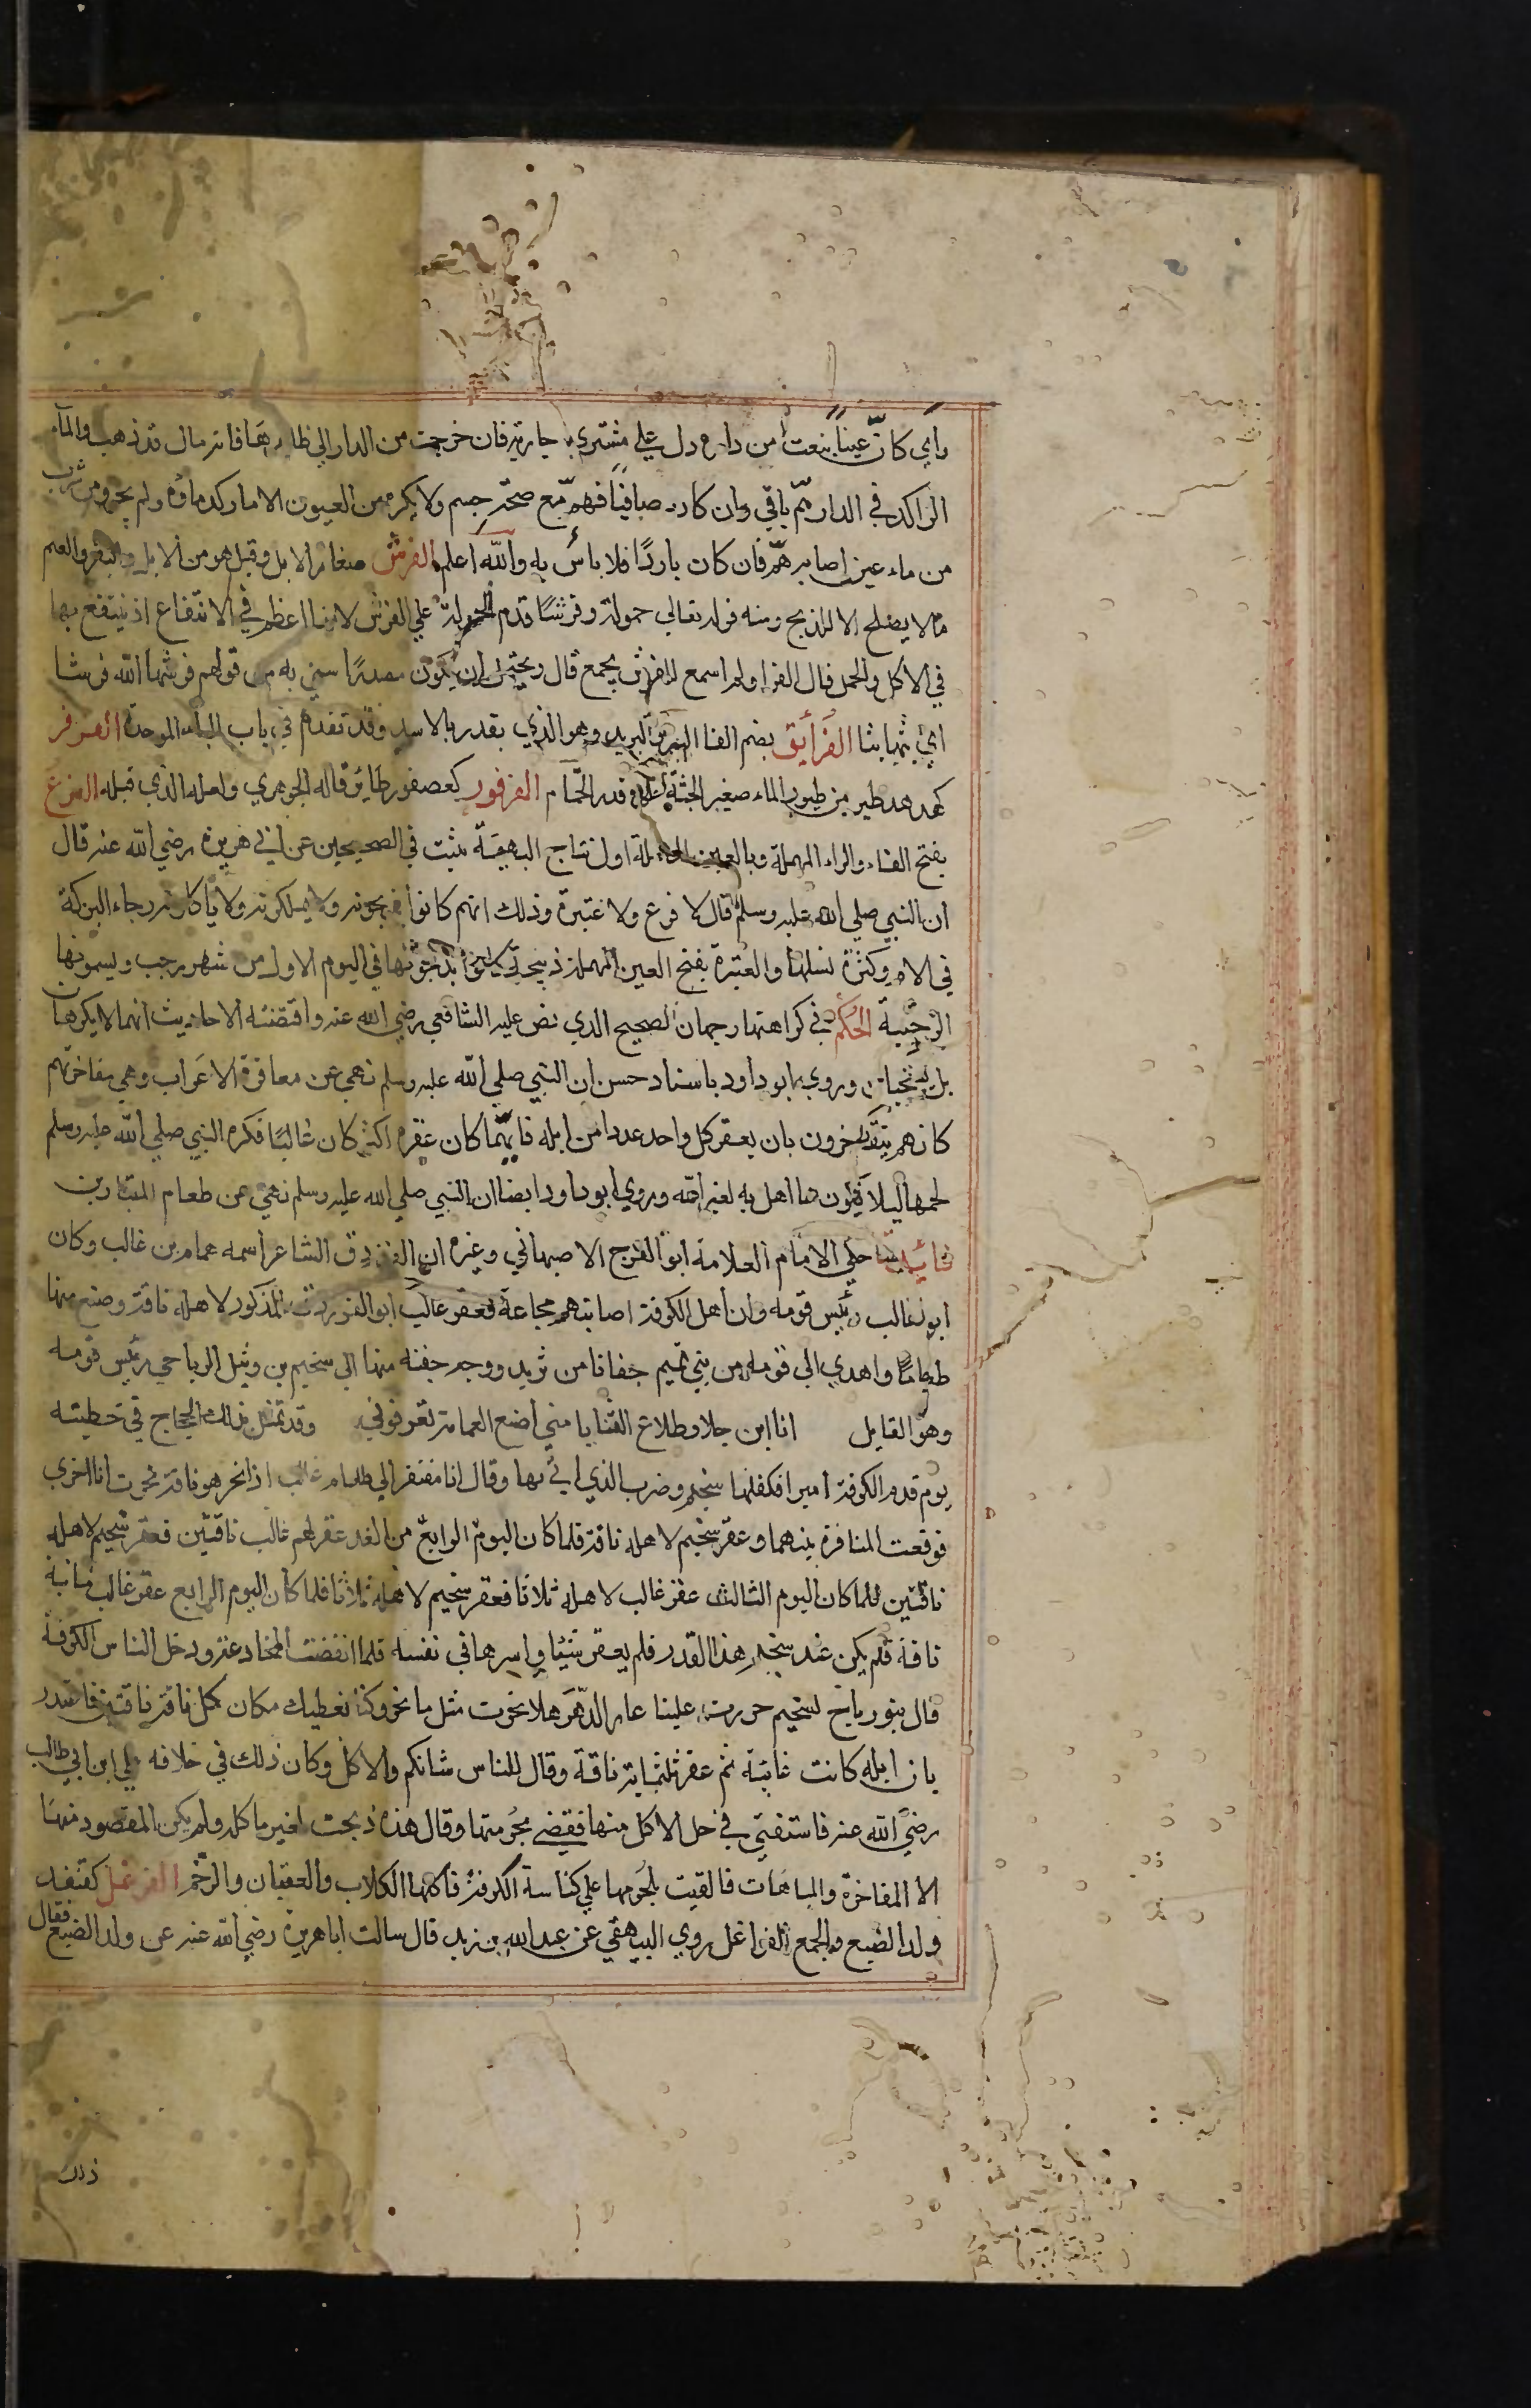 راي كانّ عيناً نبعت من داره دل علي مشتري جارية فان خرجت من الدار الي ظاهرها فانه مال قد ذهب والمآء
الراكد في الدار همّ باقي وان كان صافيًا فهو همّ مع صحة جسم ولا يكره من العيون الا ما ركد ماؤه ولم يجر ومن شرب
من ماء عين اصابه همّ فان كان باردًا فلا بأس به والله اعلم الفرش صغار الابل وقيل هو من الابل والبقر والغنم
ما لا يصلح الا للذبح ومنه قوله تعالي حمولة وفرشًا قدم الحمولة علي الفرش لانها اعظم في الانتفاع اذ ينتفع بها
في الاكل والحمل قال الفرا ولم اسمع للفرش بجمع قال ويحتمل ان يكون مصدرًا سمي به من قولهم فرشها الله فرشا
اي بثها بثا الفرأيق بضم الفا البريد وهو الذي يقدر بالاسد وقد تقدم في باب الباء الموحدة الفرفر
كهدهد طير من طيور الماء صغير الجثة علي قدر الحمام الفرفور كعصفور طائر قاله الجوهري ولعله الذي قبله الفرع
بفتح الفاء والراء المهملة وبالعين المهملة اول نتاج البهيمة ثبت في الصحيحين عن ابي هريرة رضي الله عنه قال
ان النبي صلي الله عليه وسلم قال لا فرع ولا عتيرة وذلك انهم كانوا يذبحونه ولا يملكونه ولا ياكلونه رجاء البركة
في الام وكثرة نسلها والعتيرة بفتح العين المهملة ذبيحة كانوا يذبحونها في اليوم الاول من شهر رجب ويسمونها
الرجبية الحكم في كراهتها وجهان الصحيح الذي نص عليه الشافعي رضي الله عنه واقتضته الاحاديث انهما لا يكرهان
بل يستحبان وروي ابو داود باسناد حسن ان النبي صلي الله عليه وسلم نهي عن معاقرة الاعراب وهي مفاخرتهم
كانهم يتفاخرون بان يعقر كل واحد عددا من ابله فايهما كان عقره اكثر كان غالبًا فكره النبي صلي الله عليه وسلم
لحمها ليلا يكون مما اهل به لغير الله وروي ابو داود ايضا ان النبي صلي الله عليه وسلم نهي عن طعام المتبارين
فائدة حكي الامام العلامة ابو الفرج الاصبهاني وغيره ان الفرزدق الشاعر اسمه همام بن غالب وكان
ابوه غالب رئيس قومه وان اهل الكوفة اصابتهم مجاعة فعقر غالب ابو الفرزدق المذكور لاهله ناقة وصنع منها
طعامًا واهدي الي قومه من بني تميم جفانا من ثريد ووجه جفنة منها الي سحيم بن وثيل الرياحي رئيس قومه
وهو القايل انا ابن جلا وطلاع الثنايا متي اضع العمامة تعرفوني وقد تمثل بذلك الحجاج في خطبته
يوم قدم الكوفة اميرا فكفاها سحيم وضرب الذي اتي بها وقال انا مفتقر الي طعام غالب اذا نحر هو ناقة نحرت انا اخري
فوقعت المنافرة بينهما وعقر سحيم لاهله ناقة فلما كان اليوم الرابع من الغد عقر لهم غالب ناقتين فعقر سحيم لاهله
ناقتين فلما كان اليوم الثالث عقر غالب لاهله ثلاثا فعقر سحيم لاهله ثلاثا فلما كان اليوم الرابع عقر غالب مائة
ناقة فلم يكن عند سحيم هذا القدر فلم يعقر شيئا واسرها في نفسه فلما انقضت المجاعة ودخل الناس الكوفة
قال بنو رياح لسحيم جررت علينا عار الدهر هلا نحرت مثل ما نحر وكنا نعطيك مكان كل ناقة ناقتين فاعتذر
بان ابله كانت غائبة ثم عقر ثلثماية ناقة وقال للناس شانكم والاكل وكان ذلك في خلافه علي ابن ابي طالب
رضي الله عنه فاستفتي في حل الاكل منها فقضي بحرمتها وقال هذه ذبحت لغير ماكله ولم يكن المقصود منها
الا المفاخرة والمباهات فالقيت بلحومها علي كناسة الكوفة فاكلها الكلاب والعقبان والرخم الفرعل كقنفد
ولد الضبع والجمع الفراعل روي البيهقي عن عبد الله بن زيد قال سالت ابا هريرة رضي الله عنه عن ولد الضبع فقال
ذلك